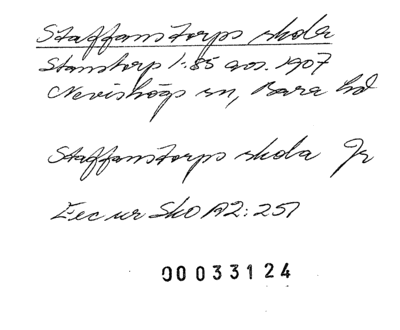 Staffanstorps skola
Stanstorp 1:85 avs. 1907
Nevishögs sn, Bara hd
Staffanstorps skola Gr
Exc ur Sko A2:251
00033124